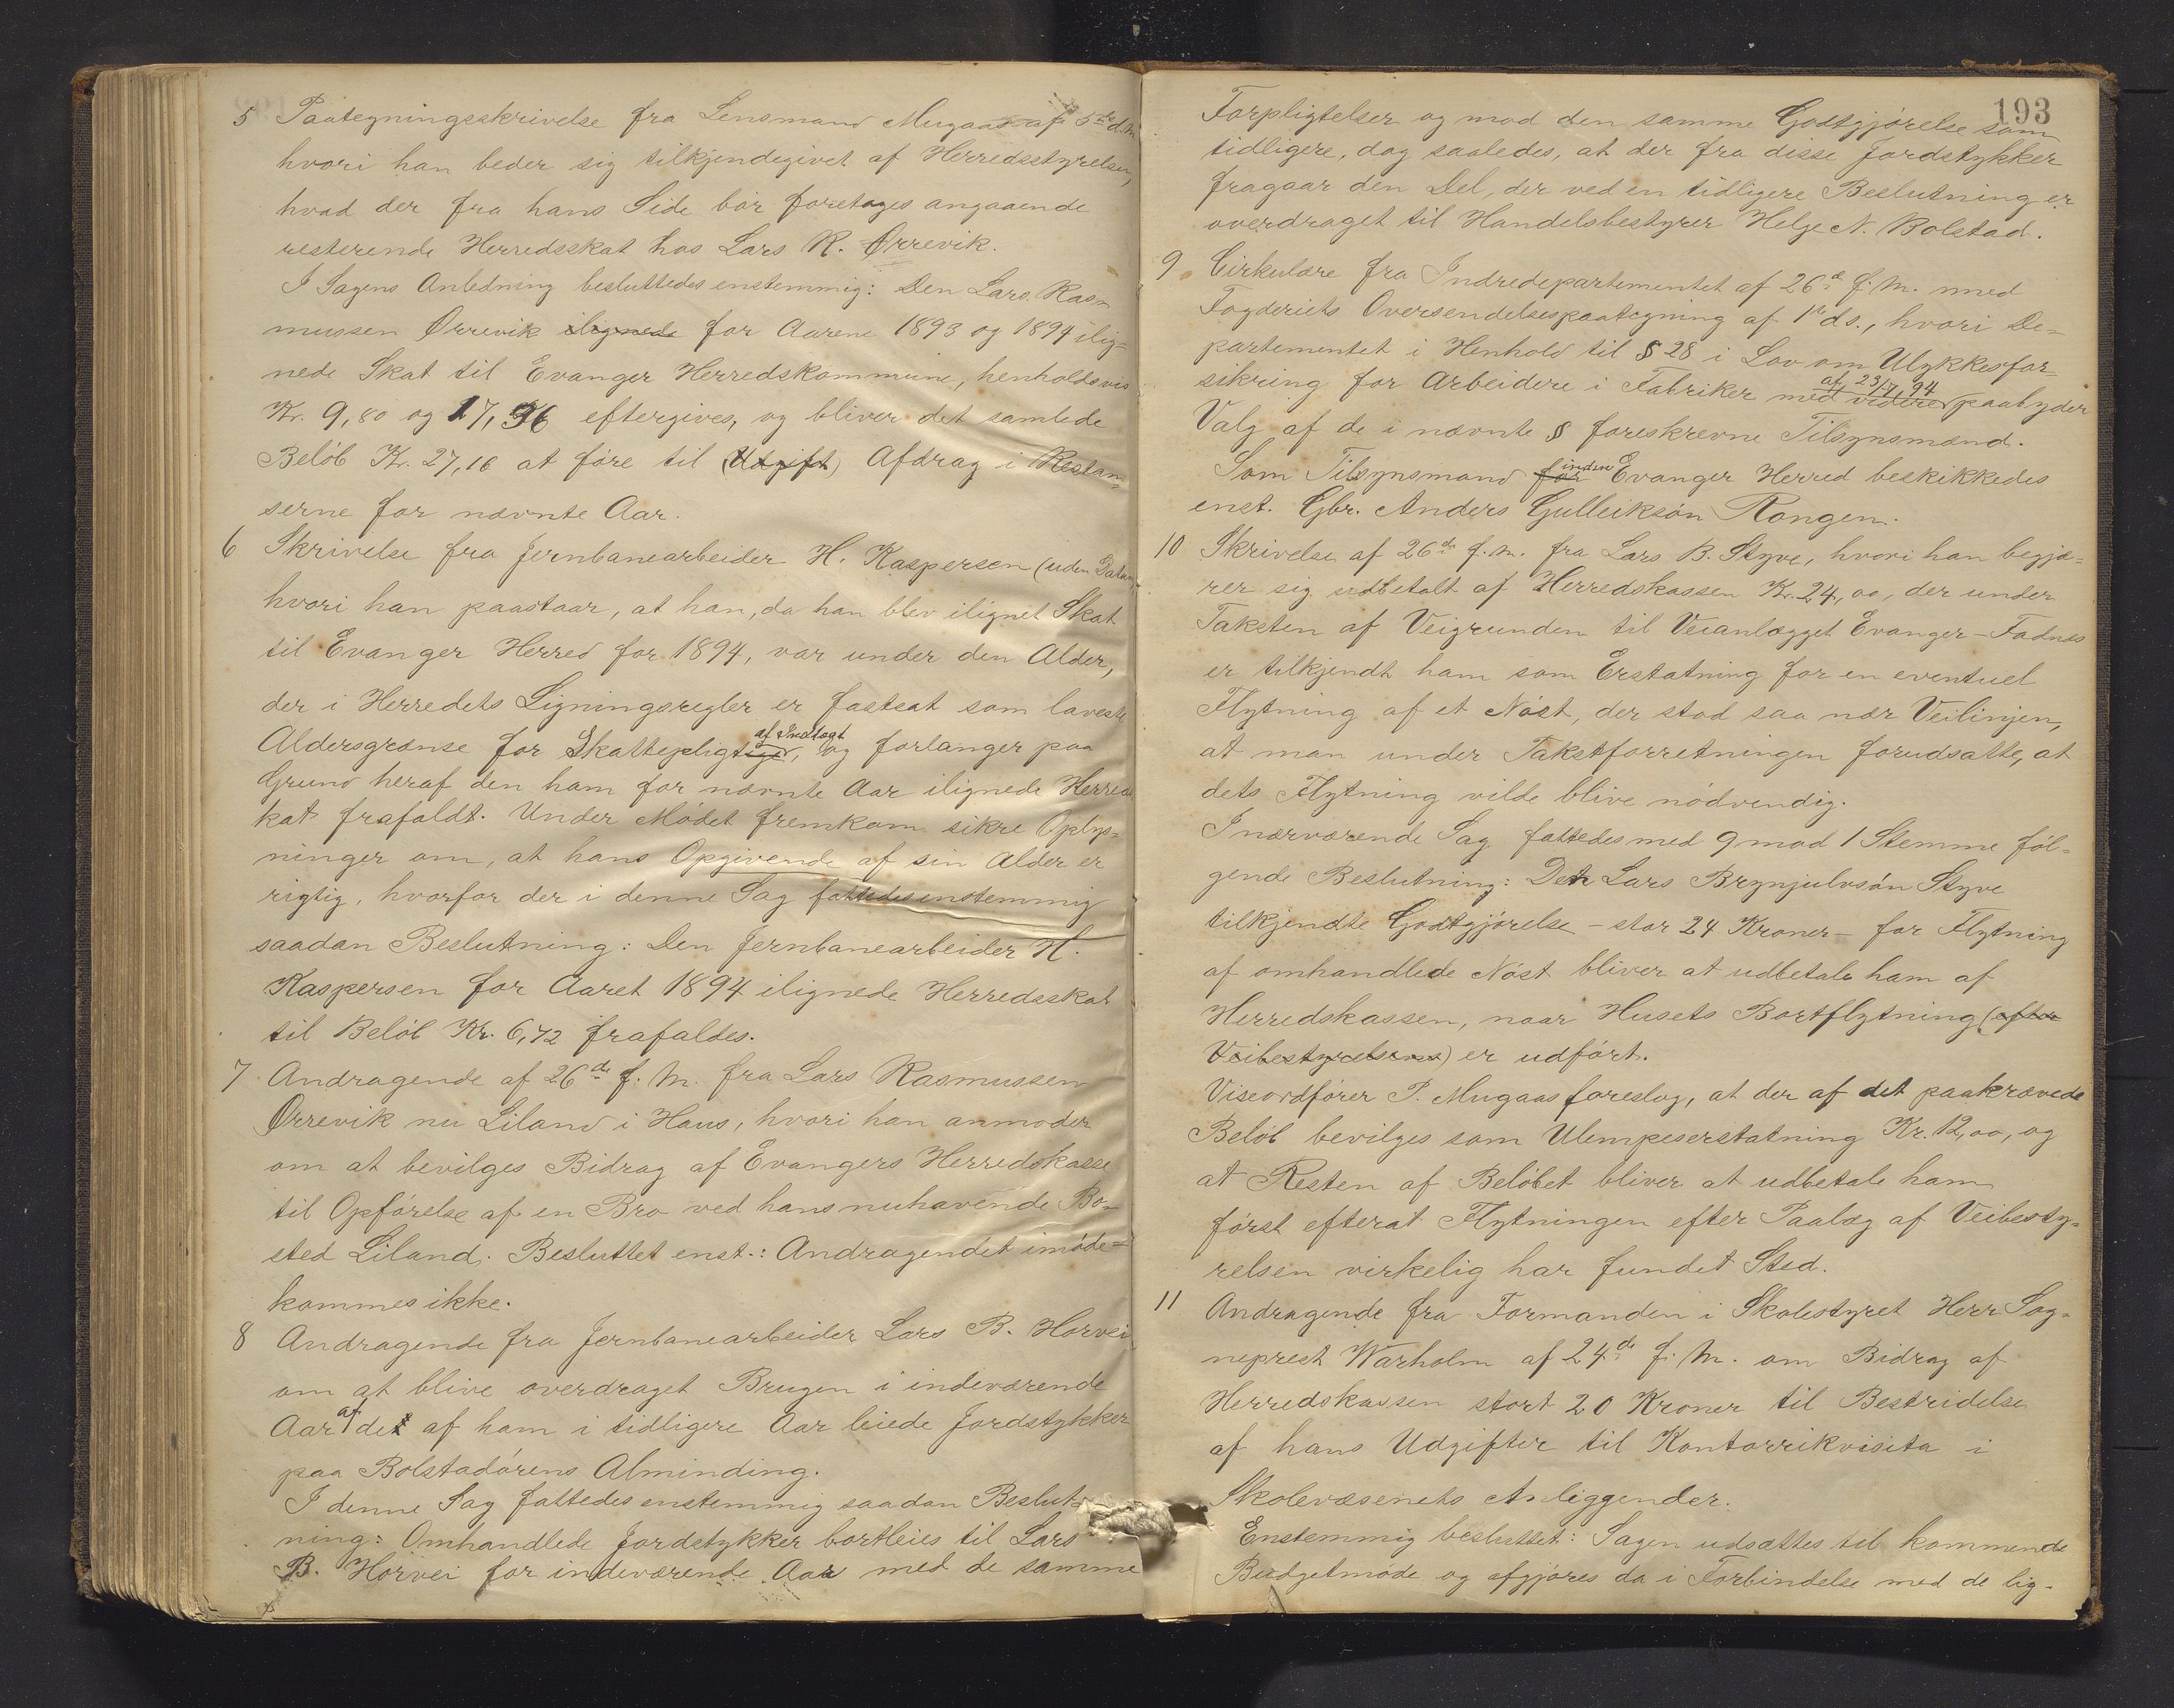 5 Paategningsskrivelse fra Lensmand Mugaas af 5te d.M.
hvori han beder sig tilkjendegivet af Herredsstyrelsen,
hvad der fra hans Side bör foretages angaaende
resterende Herredsskat hos Lars R. Örrevik.
I Sagens Anledning besluttedes enstemmig: Den Lars Ras-
mussen Örrevik ilignede for Aarene 1893 og 1894 ilig-
nede Skat til Evanger Herredskommune, henholdsvis
Kr. 9,80 og 17,36 eftergives, og bliver det samlede
Belöb Kr. 27,16 at före til (Udgift) Afdrag i Restan-
serne for nævnte Aar.
6 Skrivelse fra Jernbanearbeider H. Kaspersen (uden Datum)
hvori han paastaar, at han, da han blev ilignet Skat
til Evanger Herred for 1894, var under den Alder,
der i Herredets Ligningsregler er fastsat som laveste
af Indtægt
Aldersgrænse for Skattepligtige, og forlanger paa
Grund heraf den ham for nævnte Aar ilignede Herreds
kat frafaldt. Under Mödet fremkom sikre Oplys-
ninger om, at hans Opgivende af sin Alder er
rigtig, hvorfor der i denne Sag fattedes enstemmig
saadan Beslutning: Den Jernbanearbeider H.
Kaspersen for Aaret 1894 ilignede Herredsskat
til Belöb Kr. 6,72 frafaldes.
7 Andragende af 26de f. M. fra Lars Rasmussen
Örrevik nu Liland i Haus, hvori han anmoder
om at bevilges Bidrag af Evangers Herredskasse
til Opförelse af en Bro ved hans nuhavende Bo-
sted Liland. Besluttet enst.: Andragendet imöde-
kommes ikke.
8 Andragende fra Jernbanearbeider Lars B. Horvei
om at blive overdraget Brugen i indeværende
Aar af de af ham i tidligere Aar leiede Jordstykker
paa Bolstadörens Alminding.
I denne Sag fattedes enstemmig saadan Beslut-
ning: Omhandlede Jordstykker bortleies til Lars
B. Horvei for indeværende Aar med de samme
193
Forpligtelser og mod den samme Godtgjörelse som
tidligere, dog saaledes, at der fra disse Jordstykker
fragaar den Del, der ved en tidligere Beslutning er
overdraget til Handelsbestyrer Helge N. Bolstad.
9 Cirkulære fra Indredepartementet af 26de f. M. med
Fogderiets Oversendelsespaategning af 1ste ds., hvori De-
partementet i Henhold til § 28 i Lov om Ulykkesfor-
af 23/7 94
sikring for Arbeidere i Fabriker med videre paabyder
Valg af de i nævnte § foreskrevne Tilsynsmænd.
Som Tilsynsmand for inden Evanger Herred beskikkedes
enst. Gbr. Anders Gulleiksön Rongen.
10 Skrivelse af 26de f. m. fra Lars B. Styve, hvori han begjæ-
rer sig udbetalt af Herredskassen Kr. 24,00, der under
Taksten af Veigrunden til Veianlægget Evanger-Fadnes
er tilkjendt ham som Erstatning for en eventuel
Flytning af et Nöst, der stod saa nær Veilinjen,
at man under Takstforretningen forudsatte, at
dets Flytning vilde blive nödvendig.
I nærværende Sag fattedes med 9 mod 1 Stemme föl-
gende Beslutning: Den Lars Brynjulvsön Styve
tilkjendte Godtgjörelse - stor 24 Kroner - for Flytning
af omhandlede Nöst bliver at udbetale ham af
Herredskassen, naar Husets Bortflytning (efter
Veibestyrelsens) er udfört.
Viseordförer P. Mugaas foreslog, at der af det paakrævede
Belöb bevilges som Ulempeserstatning Kr. 12,00, og
at Resten af Belöbet bliver at udbetale ham
först efterat Flytningen efter Paalæg af Veibesty-
relsen virkelig har fundet Sted.
11 Andragende fra Formanden i Skolestyret Herr Sog-
neprest Warholm af 24de f. M. om Bidrag af
Herredskassen stort 20 Kroner til Bestridelse
af hans Udgifter til Kontorrikvisita i
Skolevæsenets Anliggender.
Enstemmig besluttet: Sagen udsættes til kommende
Budgetmöde og afgjöres da i Forbindelse med de lig-